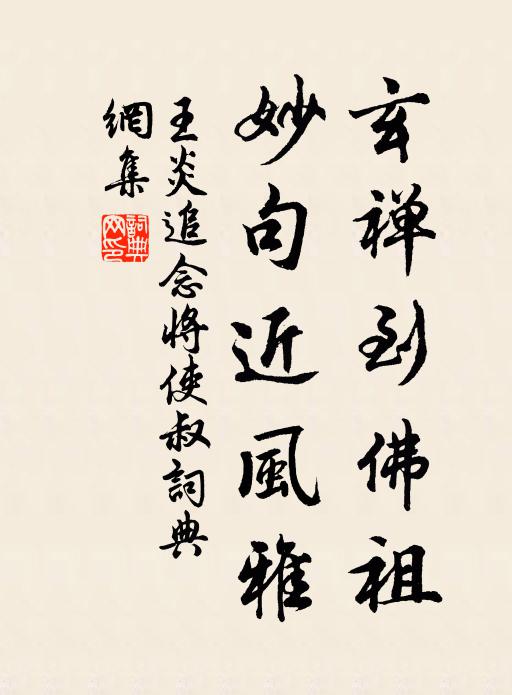 玄禅到佛祖
妙句近風雅
王炎追念將使叔詞典
網集
詞典
網印